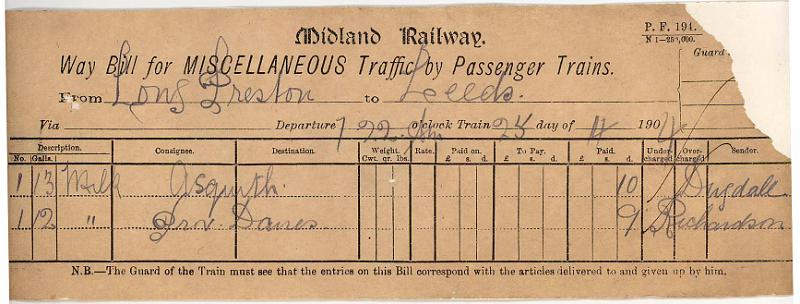 Midland Railway.
P. F. 194.
Way Bill for MISCELLANEOUS Traffic by Passenger Trains.
Guard
From Long Preston to Leeds.
Via Departure 7.22 o'clock Train 25 day of 4 1904
Description. Consignee. Destination. Weight. Rate. Paid on. To Pay. Paid. Under-charged Over-charged Sender.
No. Galls. Cwt. qr. lbs. £ s. d. £ s. d. £ s. d.
1 13 Milk Asquith. 10 Dugdall
1 12 " Prov. Danes 9 Richardson
N.B.—The Guard of the Train must see that the entries on this Bill correspond with the articles delivered to and given up by him.